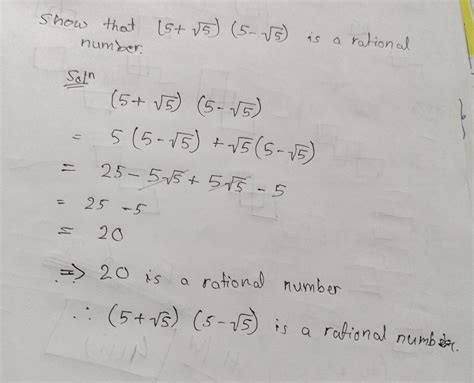 Show that (5+ √5) (5-√5) is a rational
number.
Solⁿ
(5+ √5) (5-√5)
= 5 (5-√5) +√5(5-√5)
= 25-5√5+ 5√5 - 5
= 25 -5
= 20
⇒ 20 is a rational number
∴ (5+√5) (5-√5) is a rational number.